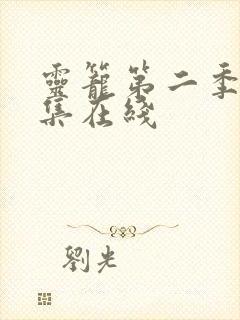 靈籠第二季
集在綫
劉光